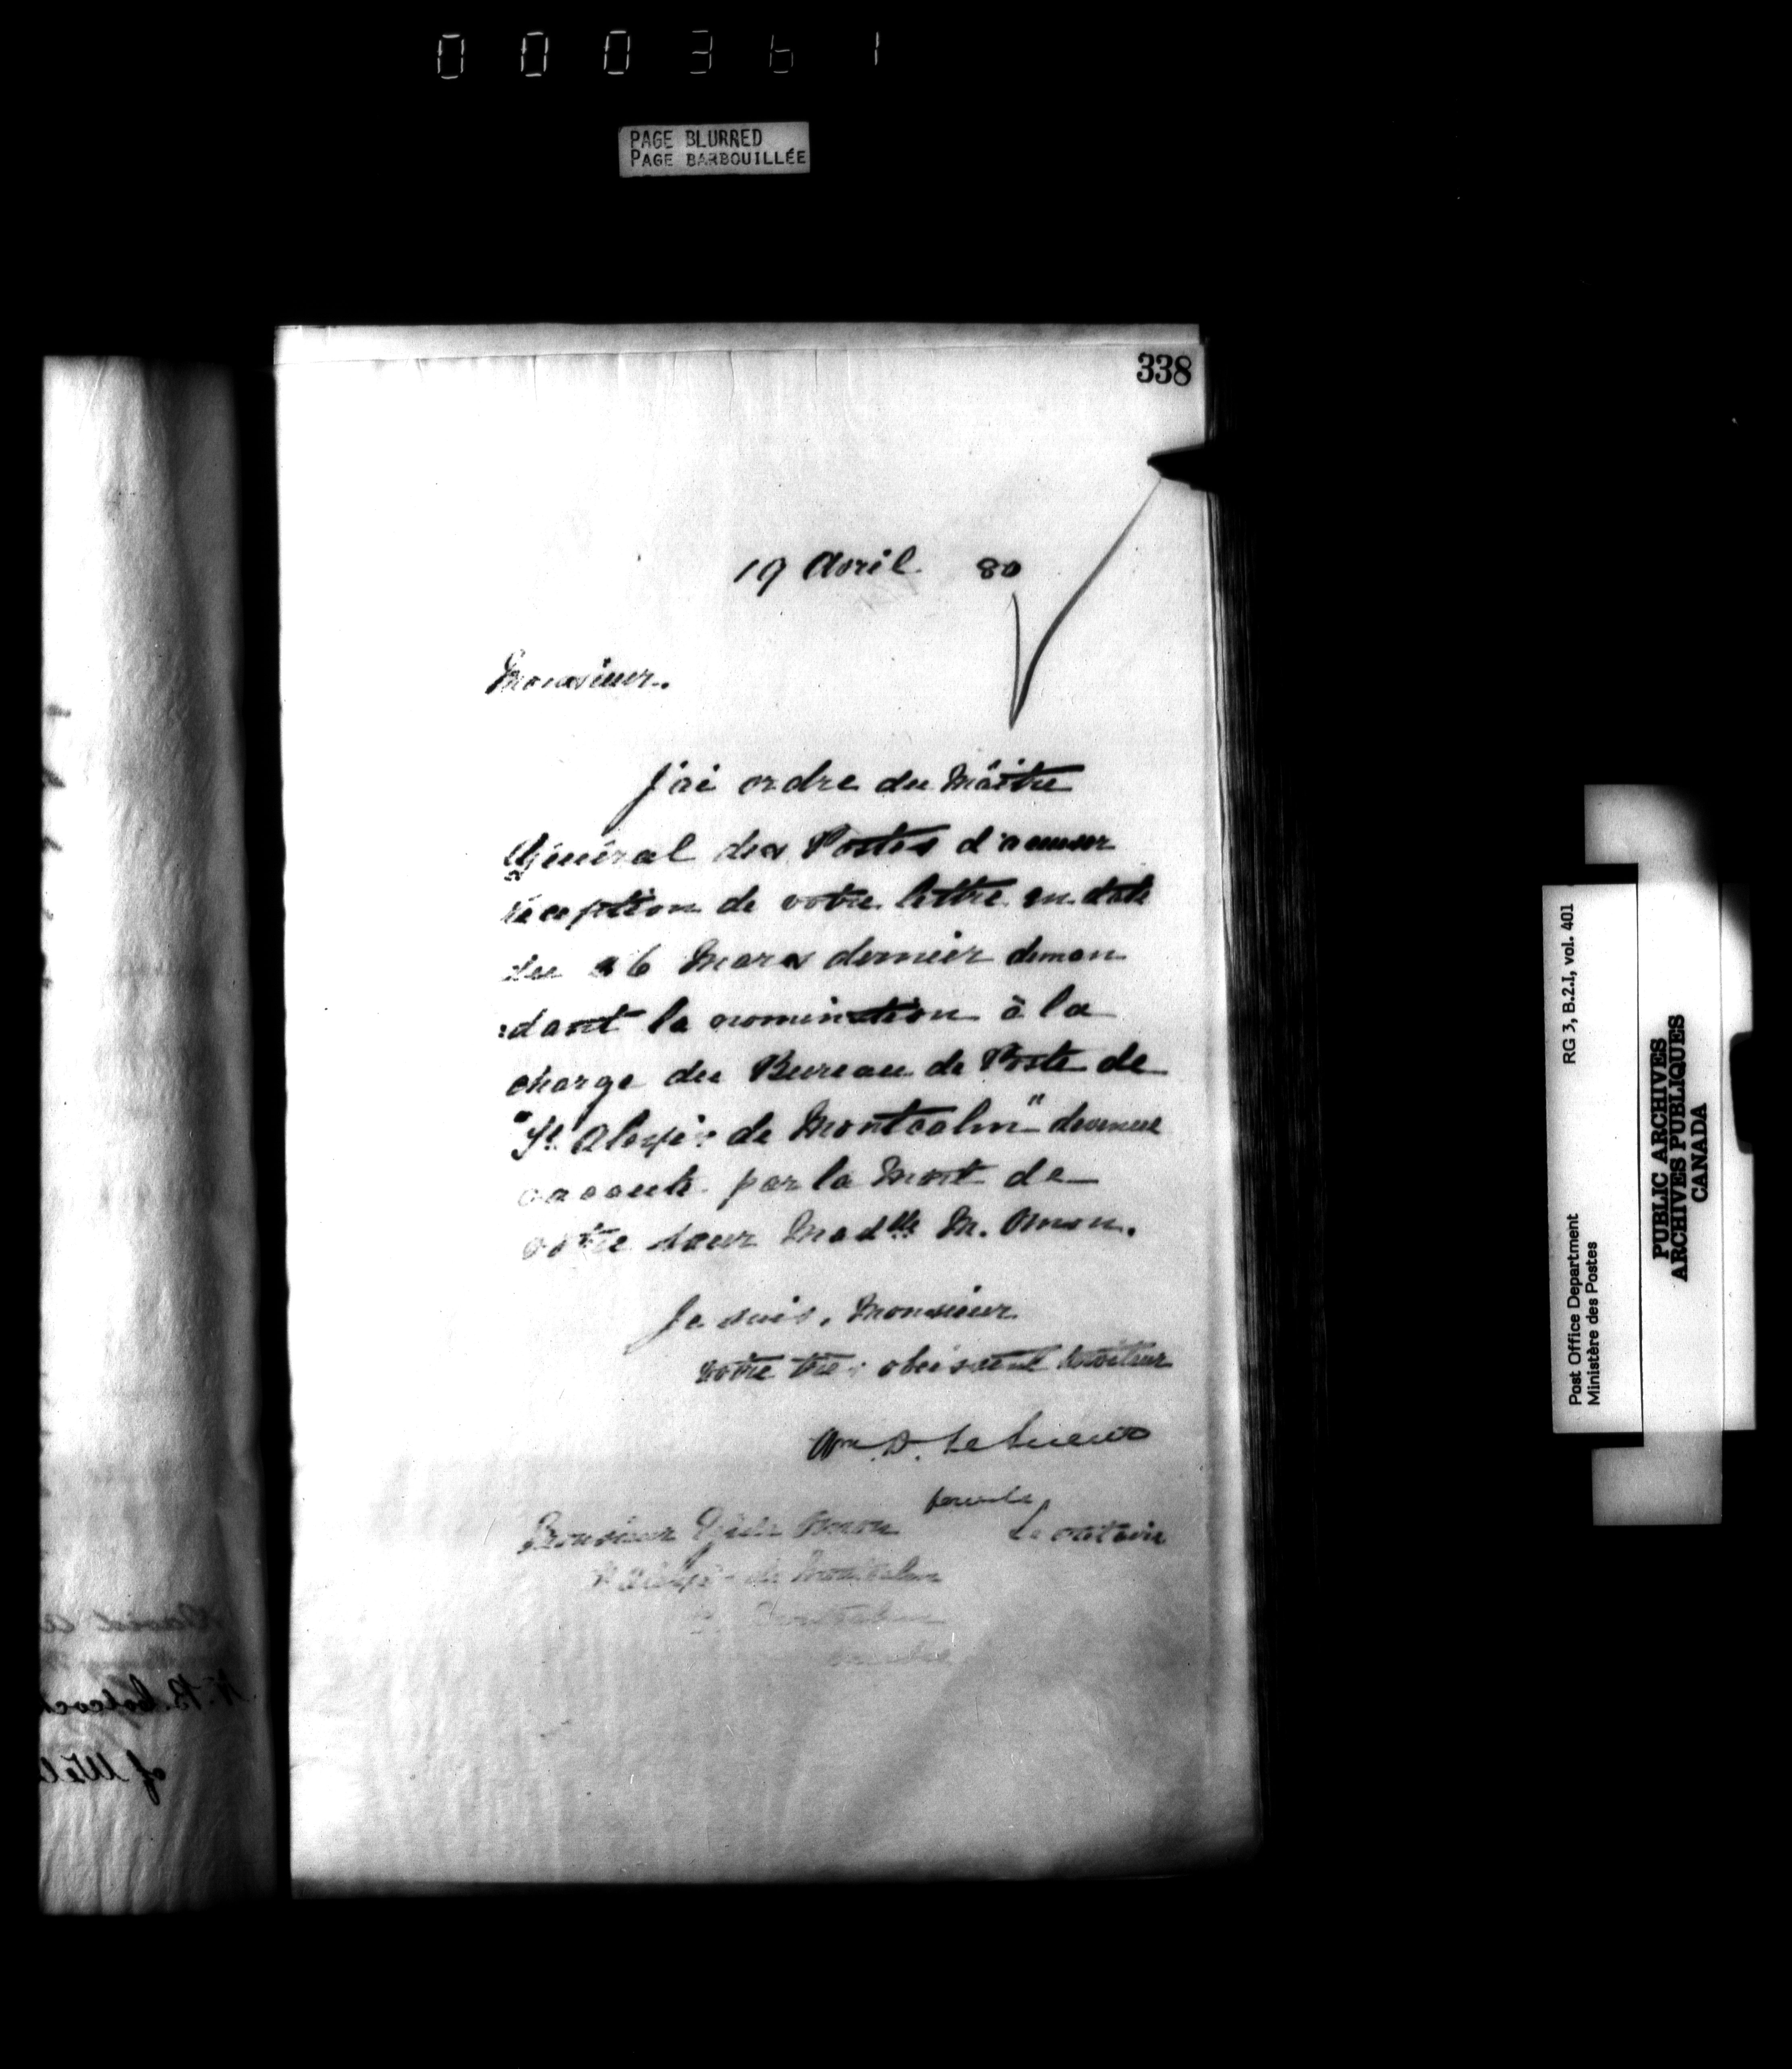 000361
PAGE BLURRED
PAGE BARBOUILLÉE
338
19 Avril 80
Monsieur.
J'ai ordre du Maître
Général des Postes d'accuser
réception de votre lettre en date
du 26 Mars dernier deman
:dant la nomination à la
charge du Bureau de Poste de
"St. Alexis de Montcalm" devenue
vacante par la Mort de
votre sœur Madlle M. Omon.
Je suis, Monsieur
votre très obeissant serviteur
Wm. D. LeSueur
pour le
Secretaire
Monsieur Omon
St Alexis de Montcalm
Montcalm
RG 3, B.2.I, vol. 401
Post Office Department
Ministère des Postes
PUBLIC ARCHIVES
ARCHIVES PUBLIQUES
CANADA